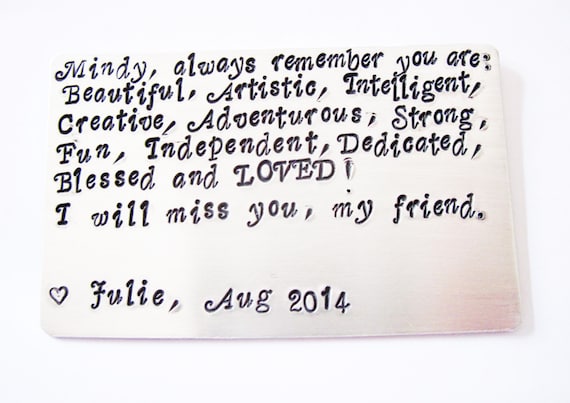 Mindy, always remember you are:
Beautiful, Artistic, Intelligent,
Creative, Adventurous, Strong,
Fun, Independent, Dedicated,
Blessed and LOVED!
I will miss you, my friend.
♡ Julie, Aug 2014